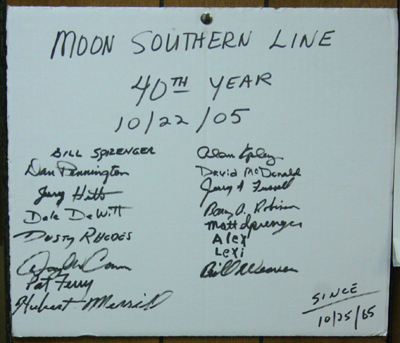 MOON SOUTHERN LINE
40TH YEAR
10/22/05
BILL SPRENGER
Dan Pennington
Jerry Hitt
Dale DeWitt
DUSTY RHODES
Pat Terry
Hubert Merrill
Alan Epley
DAVID McDonald
Jerry A
Matt Sprenger
Alex
Lexi
Bill Weaver
SINCE
10/25/65